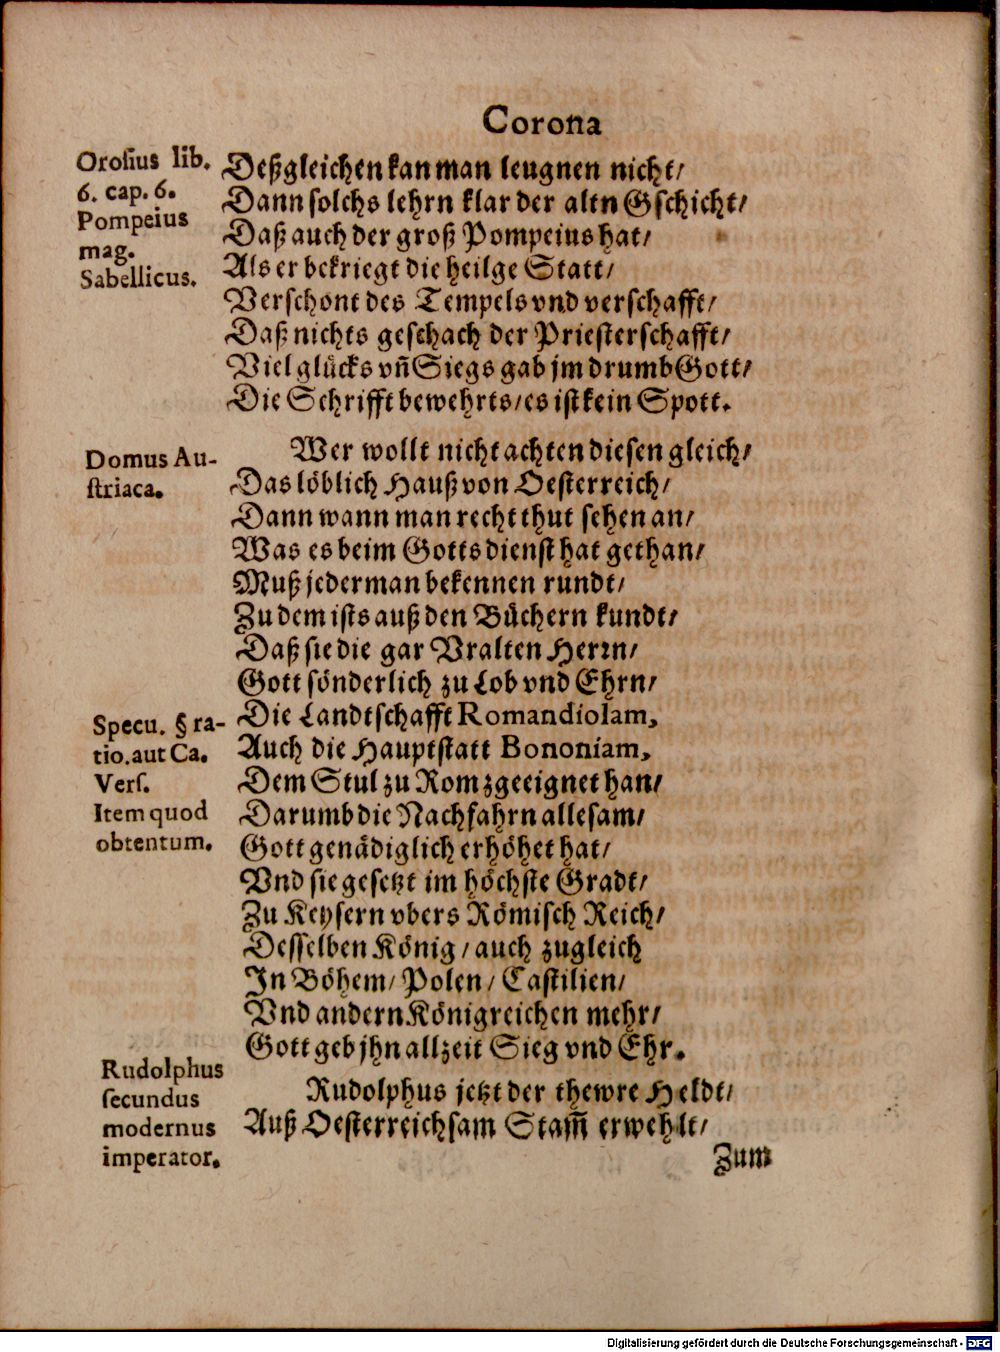 Corona
Orosius lib.
6. cap. 6.
Pompeius
mag.
Sabellicus.
Deßgleichen kan man leugnen nicht/
Dann solchs lehrn klar der altn Gschicht/
Daß auch der groß Pompeius hat/
Als er bekriegt die heilge Statt/
Verschont des Tempels vnd verschafft/
Daß nichts geschach der Priesterschafft/
Viel glücks vñ Siegs gab jm drumb Gott/
Die Schrifft bewehrts/ es ist kein Spott.
Domus Au-
striaca.
Wer wollt nicht achten diesen gleich/
Das löblich Hauß von Oesterreich/
Dann wann man recht thut sehen an/
Was es beim Gottsdienst hat gethan/
Muß jederman bekennen rundt/
Zu dem ists auß den Büchern kundt/
Daß sie die gar Vralten Herrn/
Gott sönderlich zu Lob vnd Ehrn/
Specu. § ra-
tio. aut Ca.
Vers.
Item quod
obtentum.
Die Landtschafft Romandiolam,
Auch die Hauptstatt Bononiam,
Dem Stul zu Rom zgeeignet han/
Darumb die Nachfahrn allesam/
Gott genädiglich erhöhet hat/
Vnd sie gesetzt im höchste Gradt/
Zu Keysern vbers Römisch Reich/
Desselben König/ auch zugleich
In Böhem/ Polen/ Castilien/
Vnd andern Königreichen mehr/
Gott geb jhn allzeit Sieg vnd Ehr.
Rudolphus
secundus
modernus
imperator.
Rudolphus jetzt der thewre Heldt/
Auß Oesterreichsam Stam̃ erwehlt/
Zum
Digitalisierung gefördert durch die Deutsche Forschungsgemeinschaft - DFG